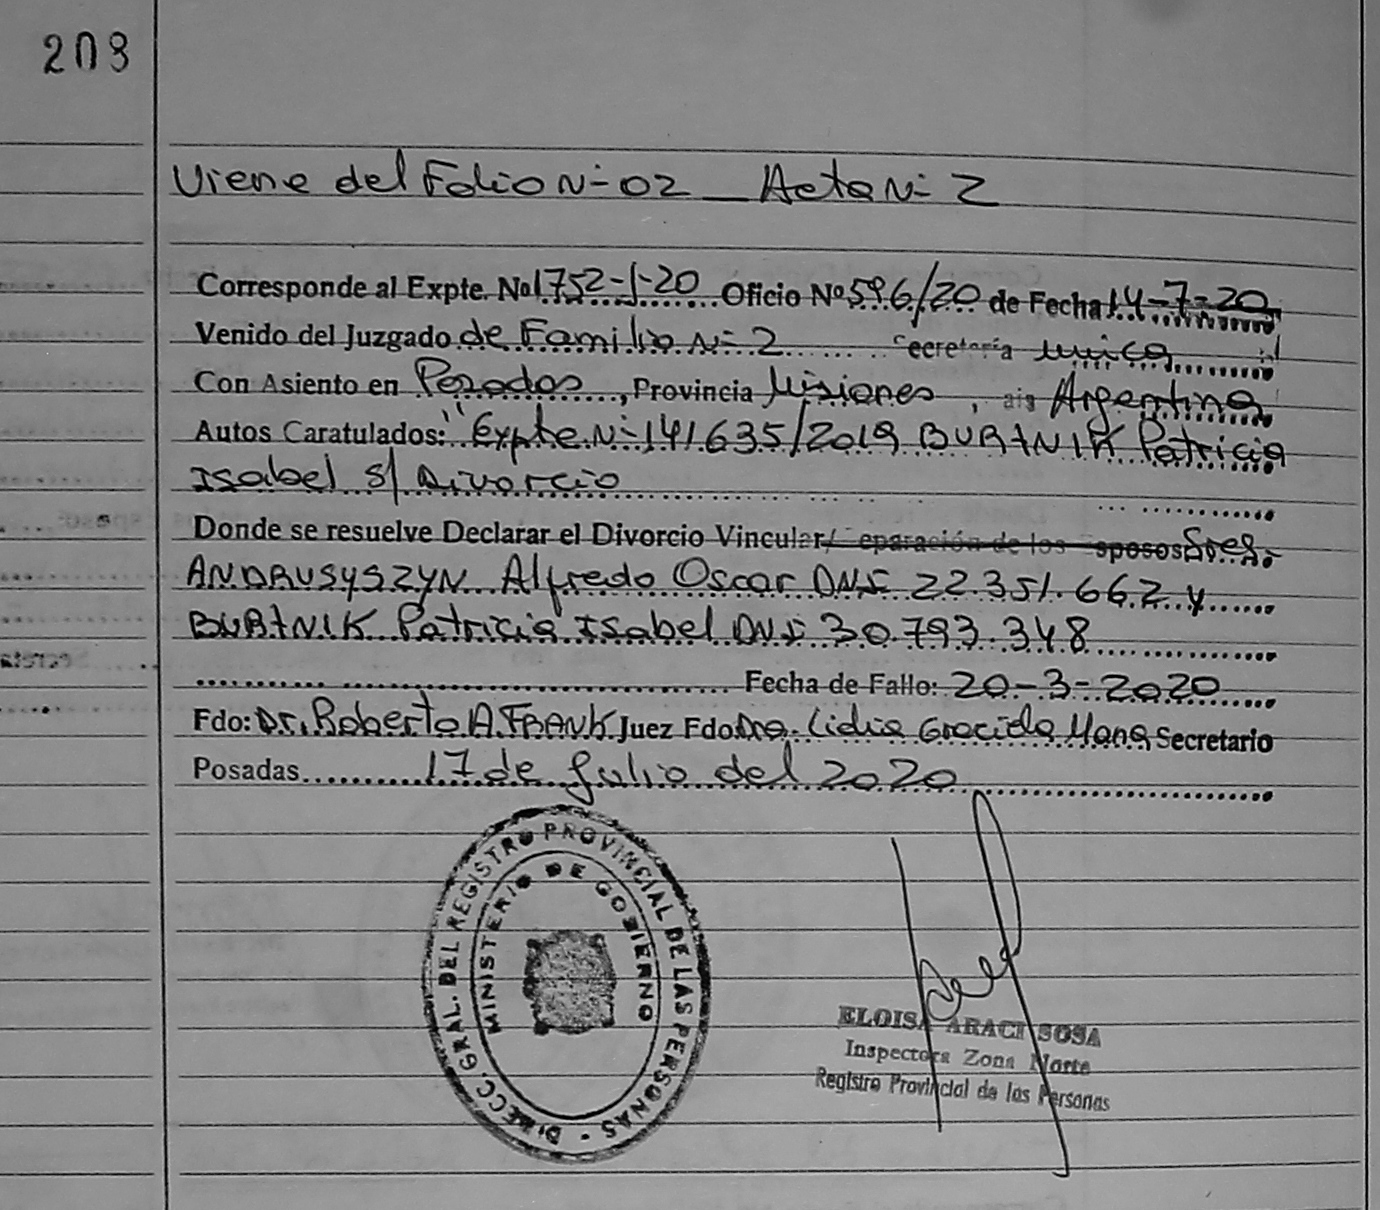 203
Viene del Folio N- 02 _ Acta N- 2
Corresponde al Expte. Nº 1752-J-20 Oficio Nº 596/20 de Fecha 14-7-20
Venido del Juzgado de Familia N- 2 Secretaría única
Con Asiento en Posadas, Provincia Misiones, ais Argentina
Autos Caratulados: "Expte N- 141635/2019 BURTNIK Patricia
Isabel s/ Divorcio
Donde se resuelve Declarar el Divorcio Vincular/ eparación de los sposos Sres.
ANDRUSYSZYN Alfredo Oscar DNI 22.351.662 y
BURTNIK Patricia Isabel DNI 30.793.348
Fecha de Fallo: 20-3-2020
Fdo: Dr. Roberto A. FRANK Juez Fdo Dra. Lidia Graciela Secretario
Posadas 17 de Julio del 2020
DIRECC. GRAL. DEL REGISTRO PROVINCIAL DE LAS PERSONAS
MINISTERIO DE GOBIERNO
ELOISA ARACI SOSA
Inspectora Zona Norte
Registro Provincial de las Personas